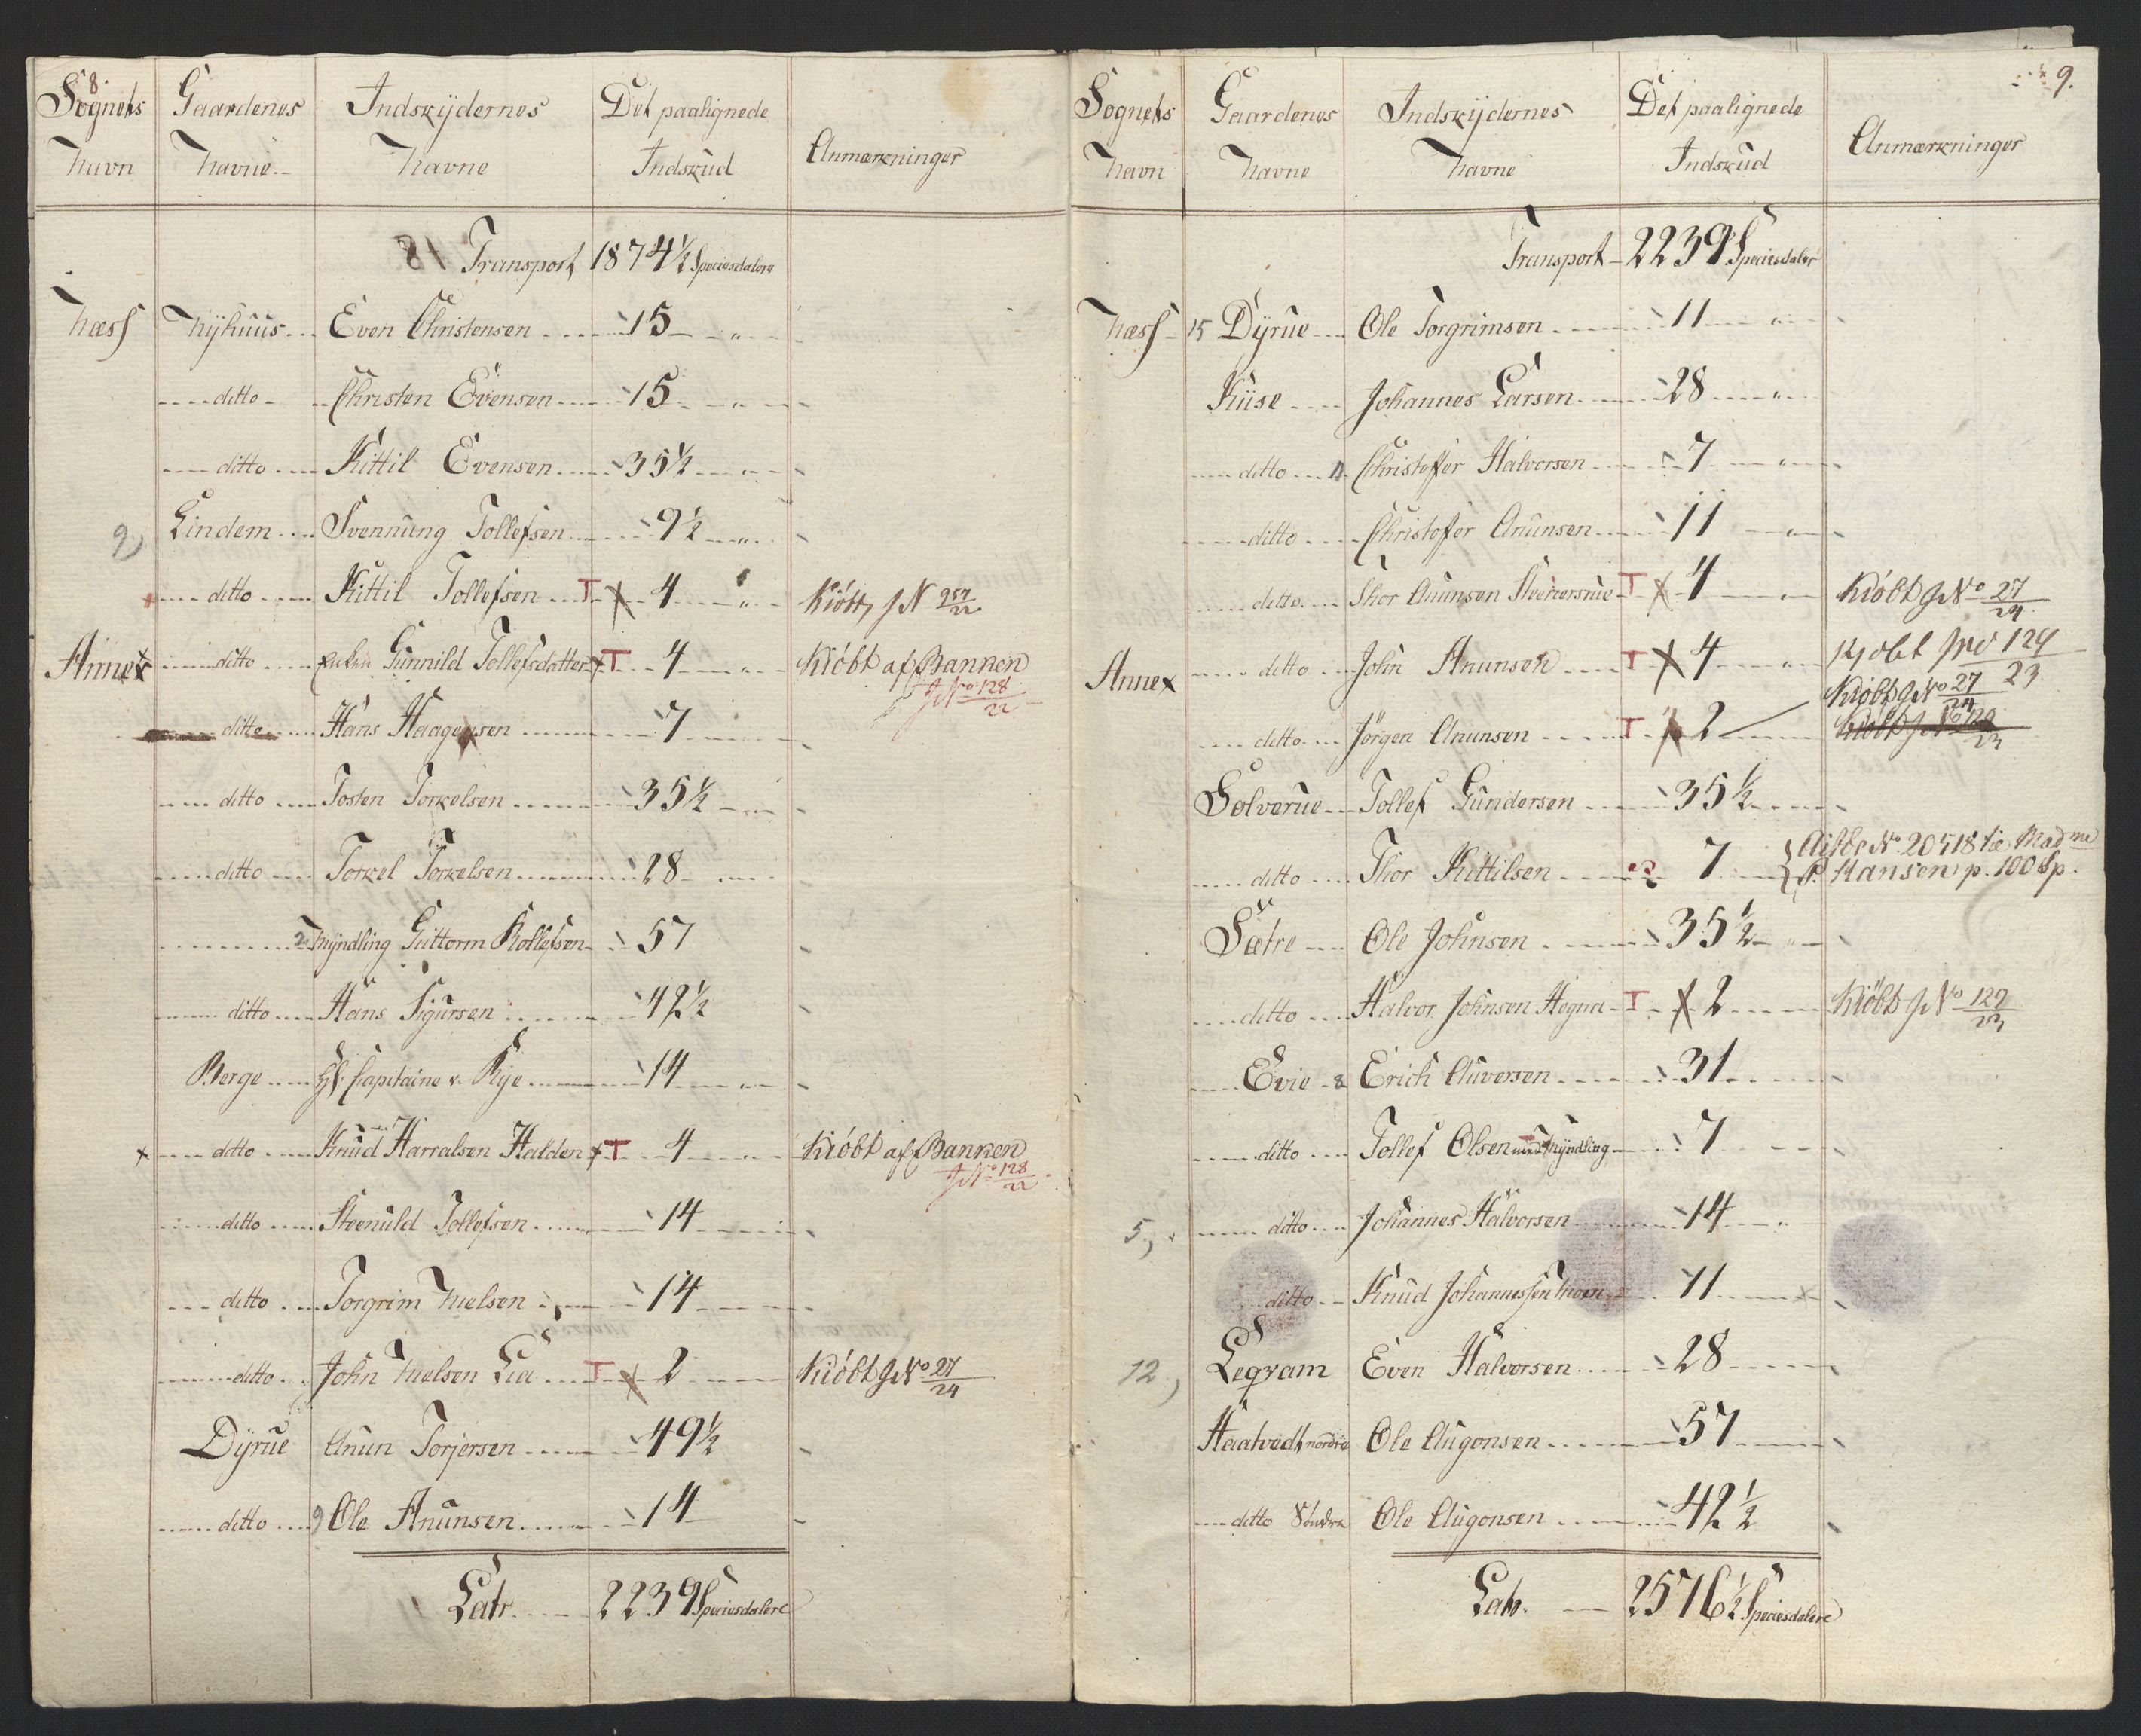 8.
Sognets Navn | Gaardenes Navne | Indskydernes Navne | Det paalignede Indskud | Anmærkninger
Transport 1874½ Speciesdalere
Næss Nyhuus Even Christensen 15 "
ditto Christen Evensen 15 "
ditto Kittil Evensen 35½ "
9) Lindem Svennung Tollefsen 9½ "
ditto Kittil Tollefsen T x 4 " Kiöbt J N
Annex ditto Gunnild Tollefsdatter x T 4 " Kiöbt af Banken
J No 128/22
ditto Hans Haagensen 7
ditto Tosten Torkelsen 35½
ditto Torkel Torkelsen 28
Myndling Guttorm Rollefsen 57
ditto Hans Sigursen 42½
Berge Hr Capitaine v. Rye 14 "
x ditto Knud Harralsen Halden x T 4 " Kiöbt af Banken
J No 128/22
ditto Steenuld Tollefsen 14
ditto Torgrim Nielsen 14
ditto John Nielsen Lia T x 2 Kiöbt J No 27/24
Dyrue Anun Torjersen 49½
ditto Ole Anunsen 14
Latr. 2239 Speciesdalere
9.
Sognets Navn | Gaardenes Navne | Indskydernes Navne | Det paalignede Indskud | Anmærkninger
Transport 2239 Speciesdaler
Næss 15 Dyrue Ole Torgrimsen 11 "
Kiise Johannes Larsen 28 "
ditto Christoffer Halvorsen 7 "
ditto Christoffer Anunsen 11 "
ditto Thor Anunsen T x 4 " Kiöbt J No 27/24
Annex ditto John Anunsen T x 4 " Kjøbt J No 129/23
ditto Jörgen Anunsen T x 2 Kiöbt J No 27/24
Kiöbt J No 129/23
Solverue Tollef Gundersen 35½
ditto Thor Kittilsen 7 No 20518 Madme
Hansen p. 100 Sp.
Sætre Ole Johnsen 35½ "
ditto Halvor Johnsen Hogna T x 2 Kiöbt J No 129/23
Evie Erich Auversen 31
ditto Tollef Olsen med Myndling 7
5) ditto Johannes Halvorsen 14 "
ditto Knud Johannessen Moen 11
12) Legram Even Halvorsen 28
Haatvedt nordre Ole Augonsen 57
ditto Söndre Ole Augonsen 42½
Latr. 2576½ Speciesdalere